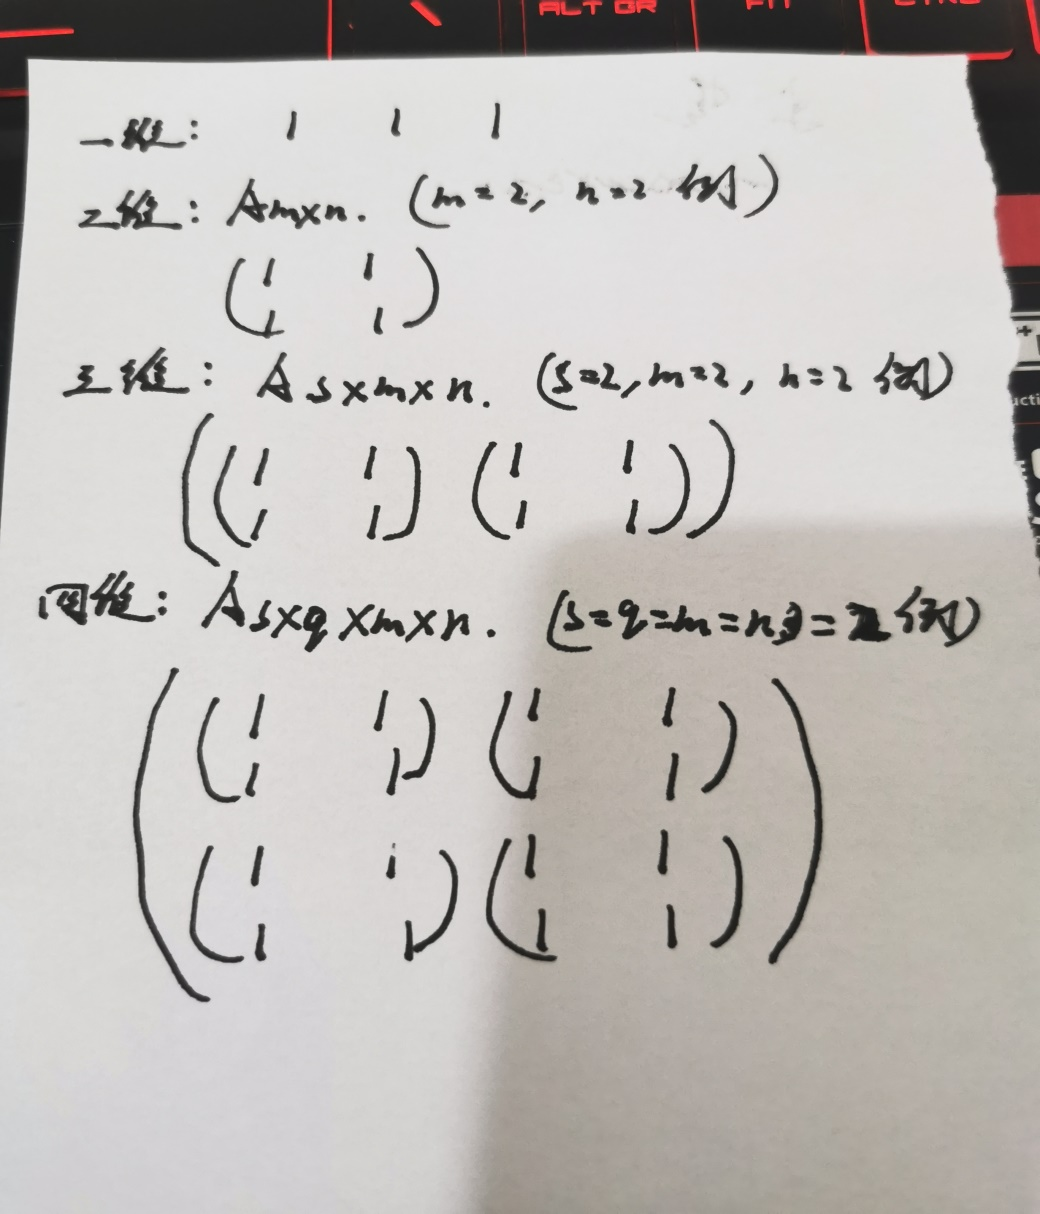 ALT GR
一维： 1 1 1
2维： Am×n. (m=2, n=2 例)
( 1 1
1 1 )
三维： As×m×n. (s=2, m=2, n=2 例)
(( 1 1 ) ( 1 1 ))
1 1 1 1
四维： As×q×m×n. (s=q=m=n=2 例)
( ( 1 1 ) ( 1 1 ) )
1 1 1 1
( 1 1 ) ( 1 1 )
1 1 1 1